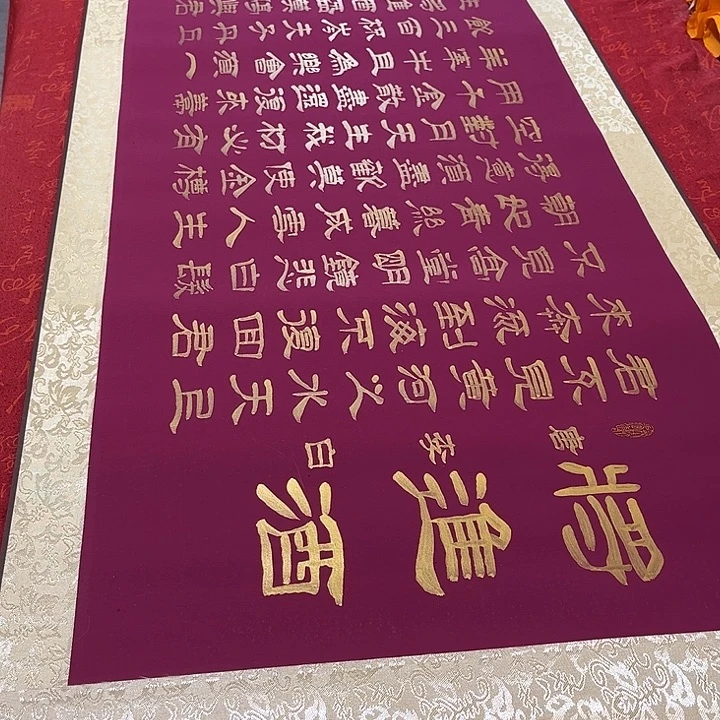 將進酒
唐 李白
君不見黃河之水天上
來奔流到海不復回君
不見高堂明鏡悲白髮
朝如青絲暮成雪人生
得意須盡歡莫使金樽
空對月天生我材必有
用千金散盡還復來烹
羊宰牛且為樂會須一
飲三百杯岑夫子丹丘